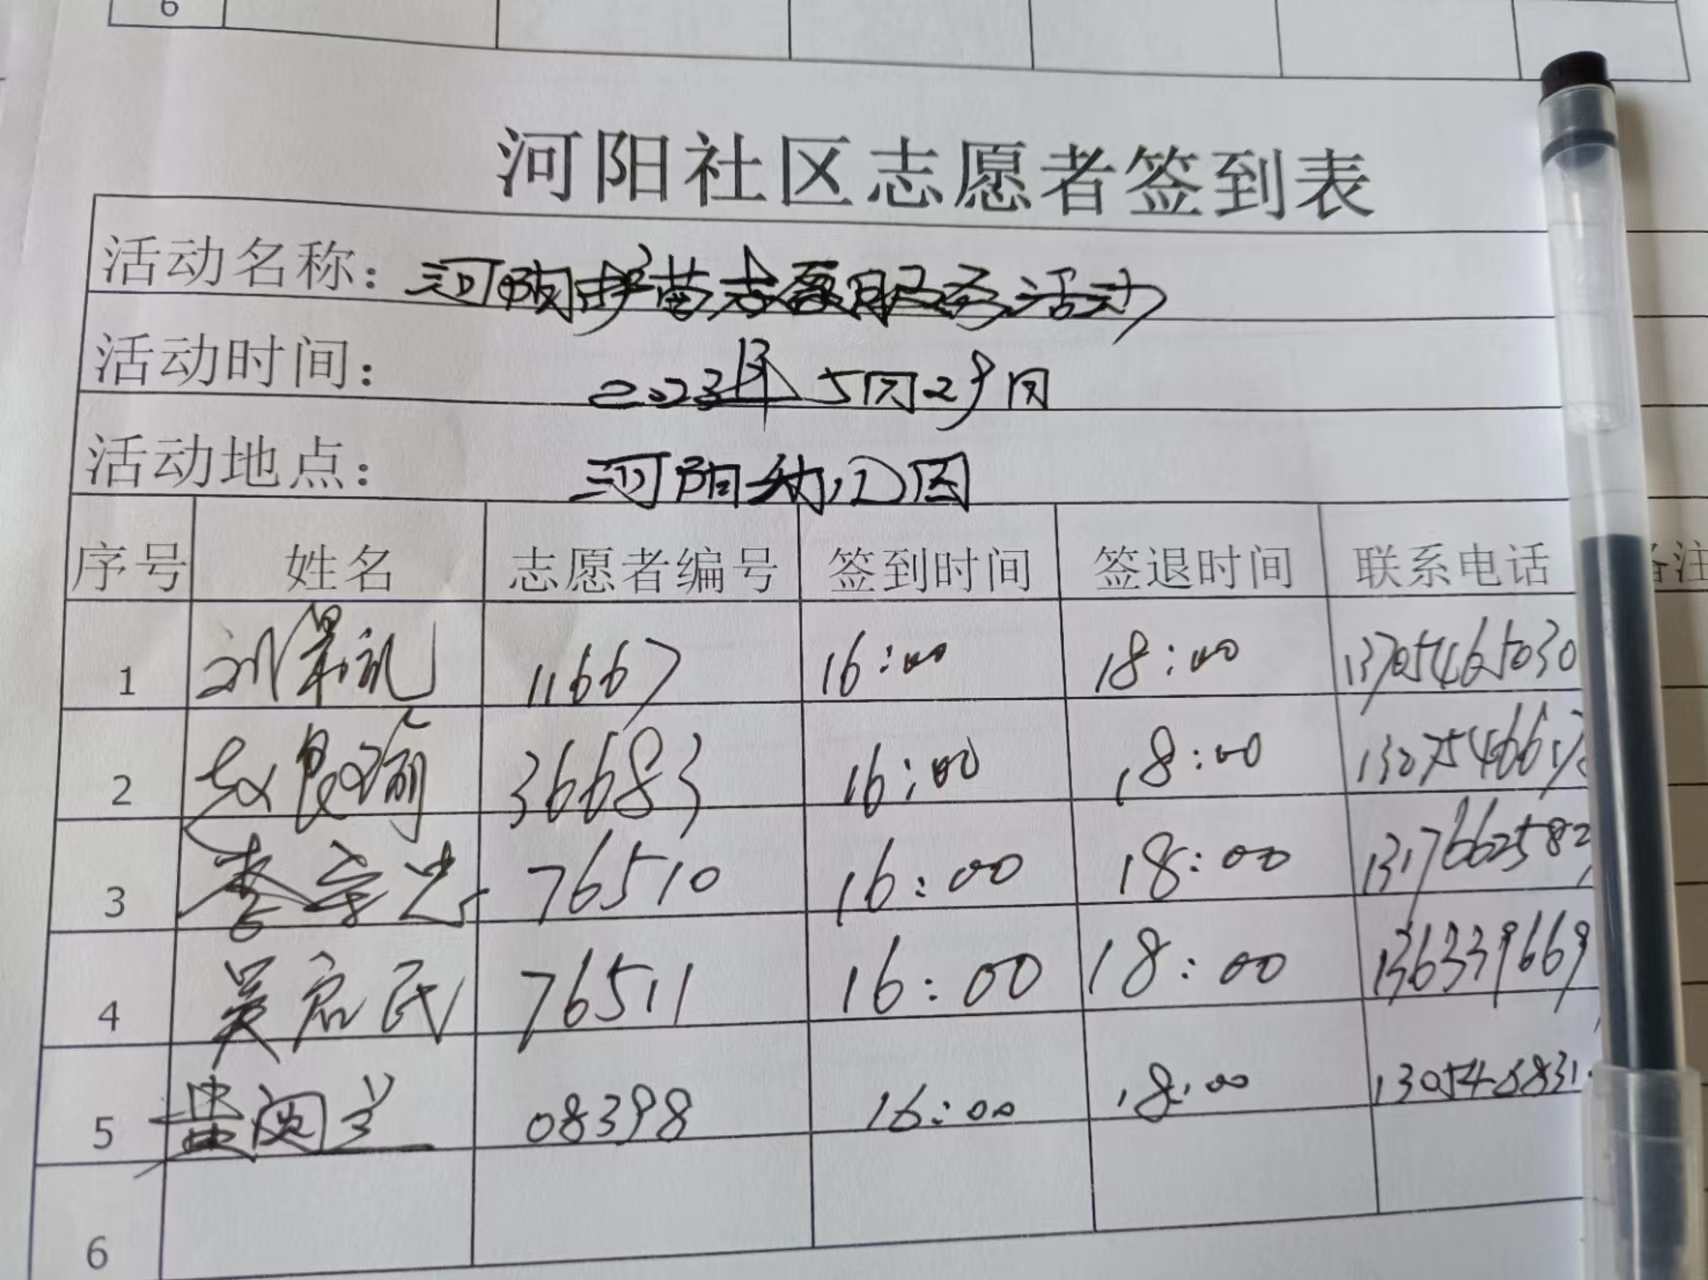 6
河阳社区志愿者签到表
活动名称：河阳护苗志愿服务活动
活动时间： 2023年5月29日
活动地点： 河阳幼儿园
序号 姓名 志愿者编号 签到时间 签退时间 联系电话 备注
1 刘景礼 11667 16:00 18:00 13705465030
2 赵良瑜 36683 16:00 18:00
3 李宗 76510 16:00 18:00
4 吴启民 76511 16:00 18:00 136339669
5 盐兰 08398 16:00 18:00
6